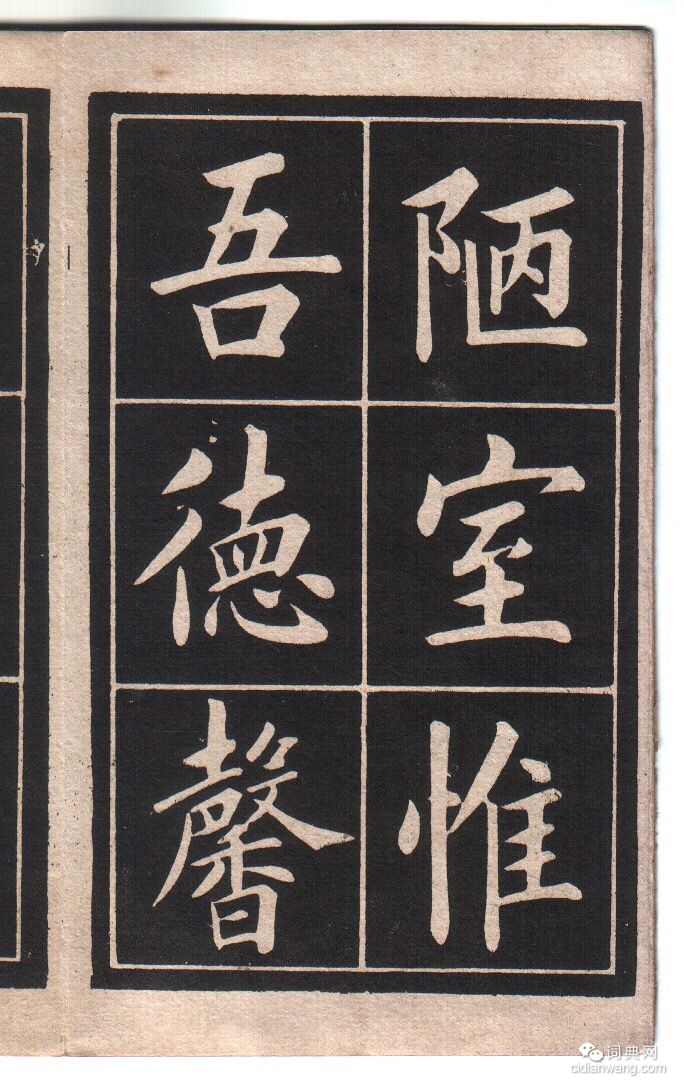 陋室惟
吾德馨
词典网
cidianwang.com